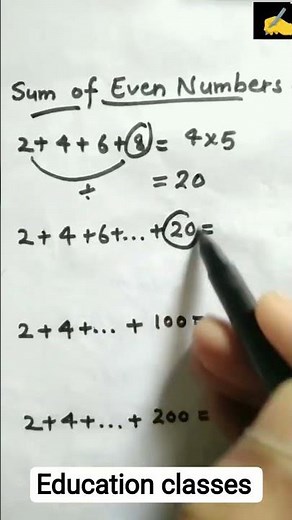 Sum of Even Numbers
2+4+6+8 = 4×5
÷
= 20
2+4+6+...+20=
2+4+...+100=
2+4+...+200=
Education classes